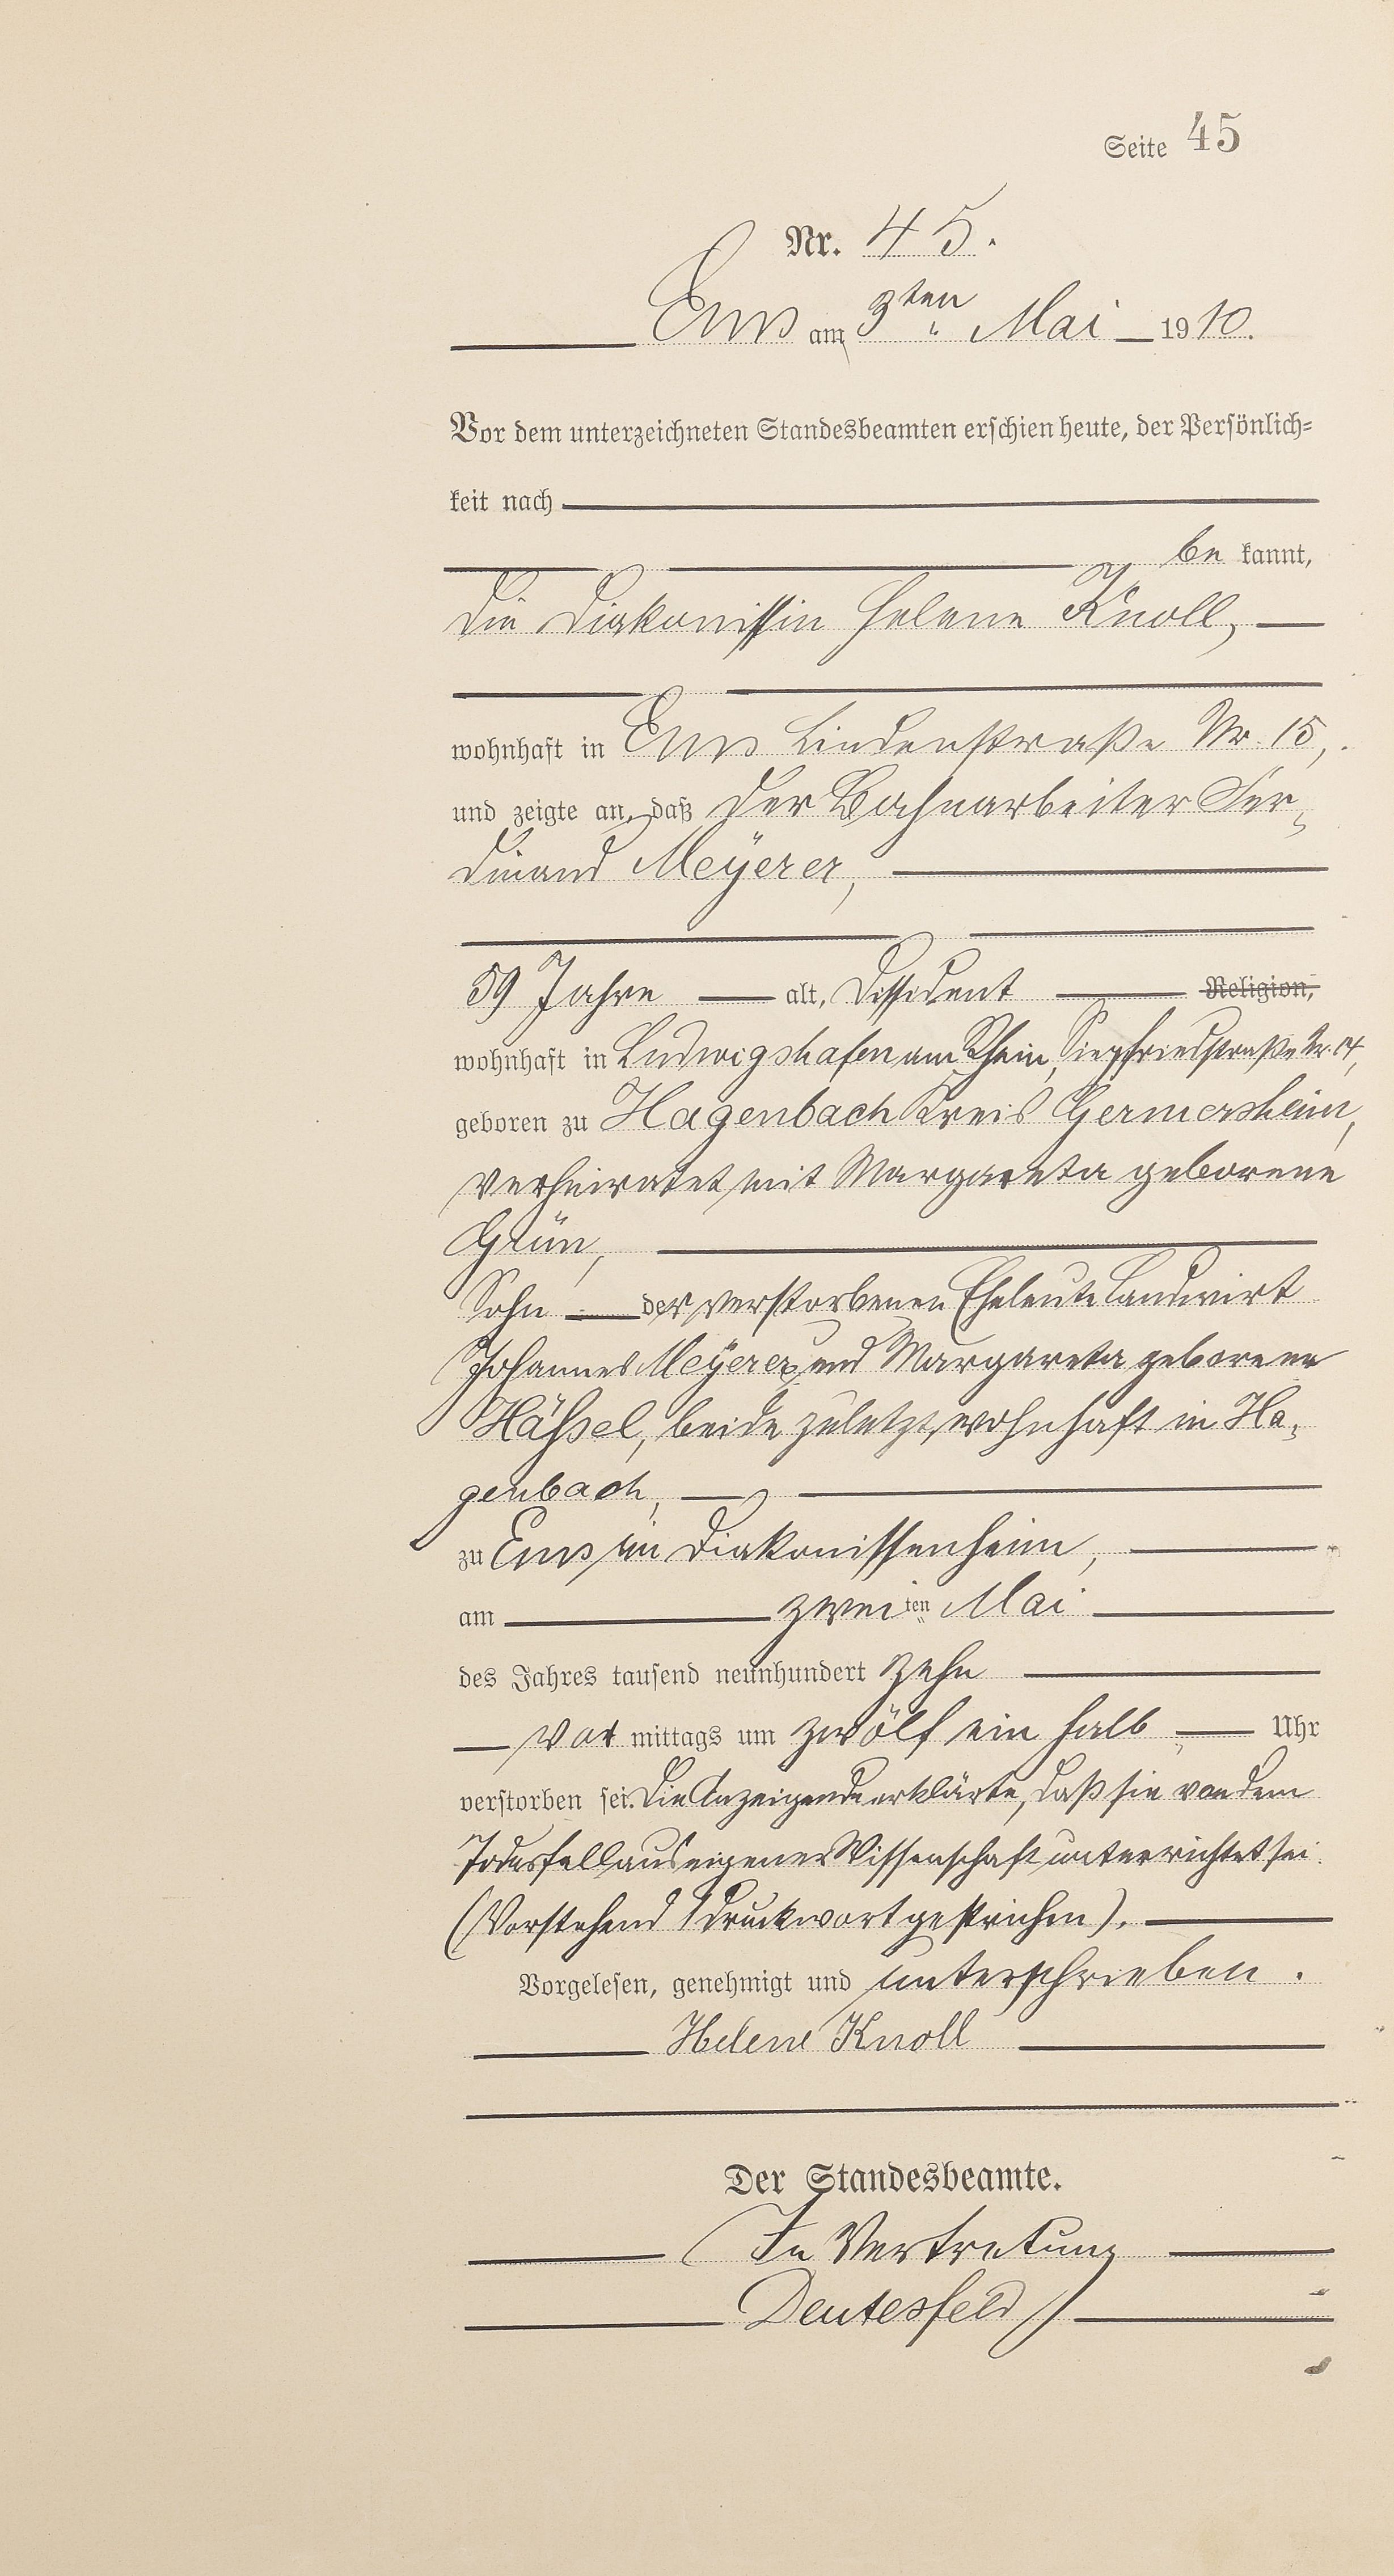 Seite 45
Nr. 45.
Ems am 3ten Mai 1910.
Vor dem unterzeichneten Standesbeamten erschien heute, der Persönlich-
keit nach
be kannt,
die Diakonissin Helene Knoll,
wohnhaft in Ems Lindenstraße Nr. 15,
und zeigte an, daß der Bahnarbeiter Fer-
dinand Meÿerer,
59 Jahre alt, Dissident Religion,
wohnhaft in Ludwigshafen am Rhein, Siegfriedstraße Nr. 14,
geboren zu Hagenbach Kreis Germersheim,
verheiratet mit Margareta geborene
Grün,
Sohn der verstorbenen Eheleute Landwirt
Johannes Meÿerer und Margareta geborene
Häßel, beide zuletzt wohnhaft in Ha-
genbach,
zu Ems im Diakonissenheim,
am zweiten Mai
des Jahres tausend neunhundert zehn
Vor mittags um zwölf ein halb Uhr
verstorben sei. Die Anzeigende erklärte, daß sie von dem
Todesfall aus eigener Wissenschaft unterrichtet sei
(Vorstehend 1 Druckwort gestrichen).
Vorgelesen, genehmigt und unterschrieben.
Helene Knoll
Der Standesbeamte.
In Vertretung
Deutesfeld